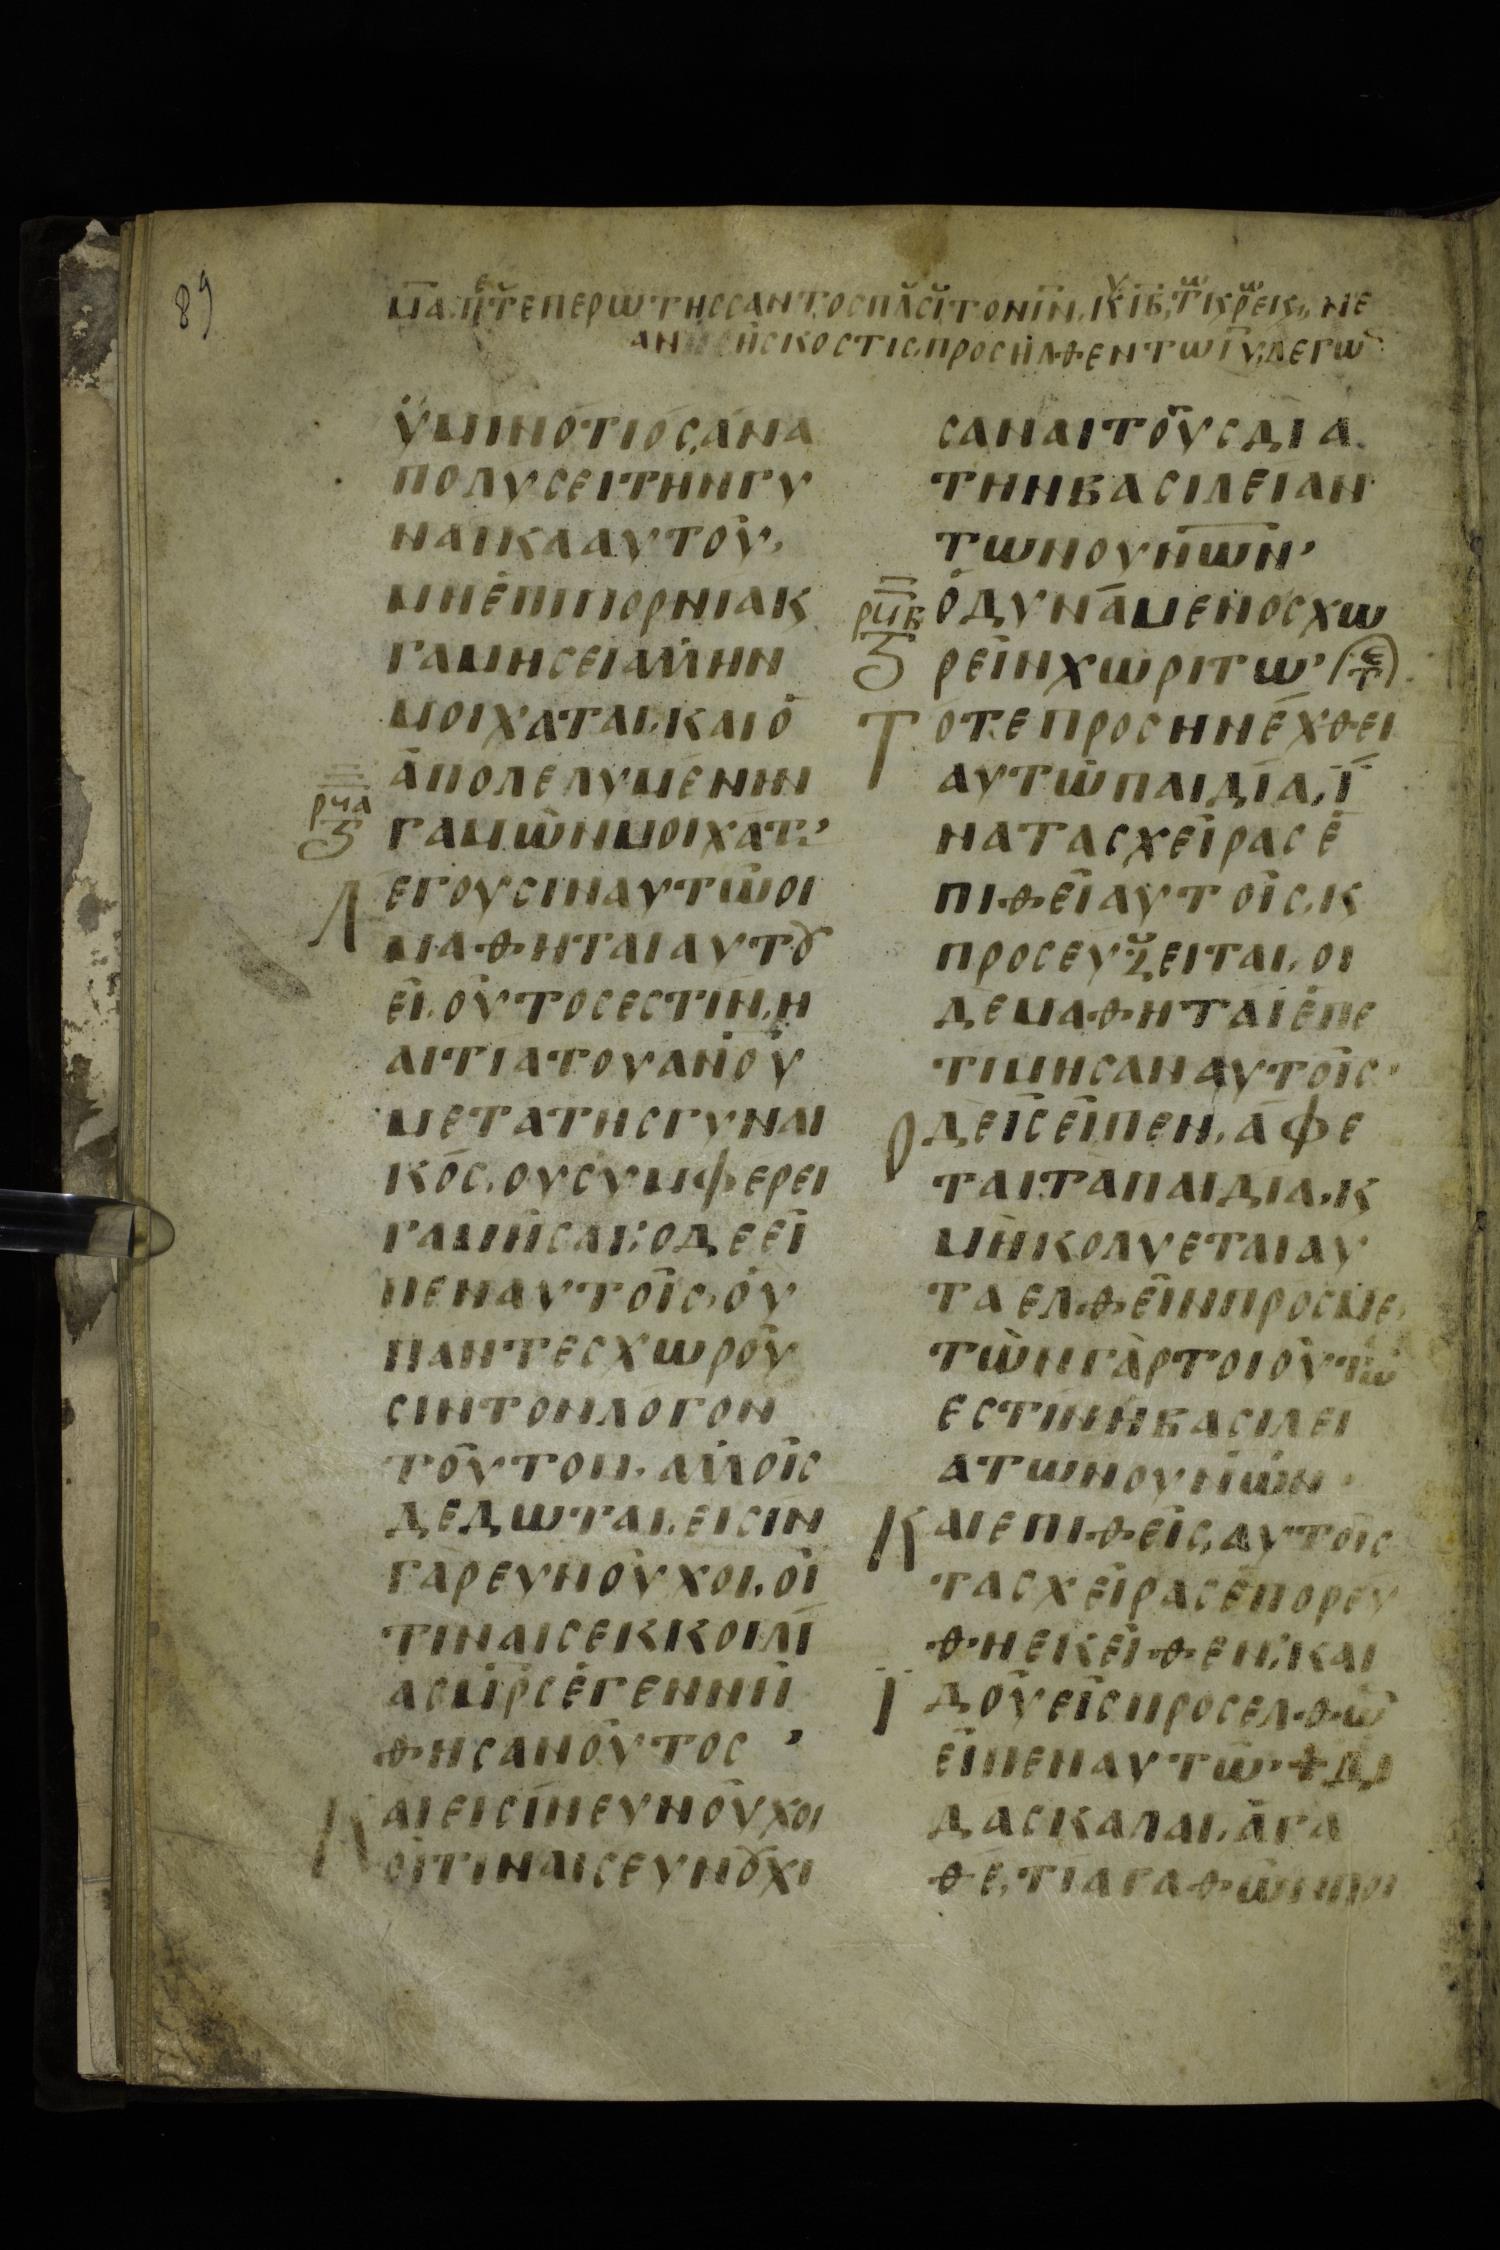 89
ΜΑ. ΠΤΕΠΕΡΩΤΗССΑΝΤΟСΠΛСΙΤΟΝΙΝ.
ΝΕΑΝΗСΚΟСΤΙС,ΠΡΟСΗΛΘΕΝΤΩΙΥ,ΛΕΓΩ
ΫΜΙΝΟΤΙΟС,ΑΝΑ
ΠΟΛΥСΕΙΤΗΝΓΥ
ΝΑΙΚΑΑΥΤΟΥ,
ΜΗΕΠΙΠΟΡΝΙΑΚ
ΓΑΜΗСΕΙΑΛΛΗΝ
ΜΟΙΧΑΤΑΙ,ΚΑΙΟ
ΑΠΟΛΕΛΥΜΕΝΗΝ
ΡЧΑ
Ϛ
ΓΑΜΩΝΜΟΙΧΑΤ,
ΛΕΓΟΥСΙΝΑΥΤΩΟΙ
ΜΑΘΗΤΑΙΑΥΤȢ
ΕΙ.ΟΥΤΟСΕСΤΙΝ,Η
ΑΙΤΙΑΤΟΥΑΝΟΥ
ΜΕΤΑΤΗСΓΥΝΑΙ
ΚΟС,ΟΥСΥΜΦΕΡΕΙ
ΓΑΜΗСΑΙ:ΟΔΕΕΙ
ΠΕΝΑΥΤΟΙС,ΟΥ
ΠΑΝΤΕСΧΩΡΟΥ
СΙΝΤΟΝΛΟΓΟΝ
ΤΟΥΤΟΝ.ΑΛΛΟΙС
ΔΕΔΩΤΑΙ,ΕΙСΙΝ
ΓΑΡΕΥΝΟΥΧΟΙ,ΟΙ
ΤΙΝΑΙСΕΚΚΟΙΛΙ
ΑСΜΡСΕΓΕΝΝΗ
ΘΗСΑΝΟΥΤΟС,
ΚΑΙΕΙСΙΝΕΥΝΟΥΧΟΙ
ΟΙΤΙΝΑΙСΕΥΝȢΧΙ
СΑΝΑΙΤΟΥСΔΙΑ
ΤΗΝΒΑСΙΛΕΙΑΝ
ΤΩΝΟΥΝΩΝ,
ΡЧΒ
Ϛ
ΟΔΥΝΑΜΕΝΟСΧΩ
ΡΕΙΝΧΩΡΙΤΩ,
ΤΟΤΕΠΡΟСΗΝΕΧΘΕΙ
ΑΥΤΩΠΑΙΔΙΑ,Ϊ
ΝΑΤΑСΧΕΙΡΑСΕ
ΠΙΘΕΙΑΥΤΟΙС,Κ
ΠΡΟСΕΥΞΕΙΤΑΙ,ΟΙ
ΔΕΜΑΘΗΤΑΙΕΠΕ
ΤΙΜΗСΑΝΑΥΤΟΙС,
ΟΔΕΙСΕΙΠΕΝ,ΑΦΕ
ΤΑΙΤΑΠΑΙΔΙΑ,Κ
ΜΗΚΟΛΥΕΤΑΙΑΥ
ΤΑΕΛΘΕΙΝΠΡΟСΜΕ,
ΤΩΝΓΑΡΤΟΙΟΥΤΩ
ΕСΤΙΝΗΒΑСΙΛΕΙ
ΑΤΩΝΟΥΝΩΝ.
ΚΑΙΕΠΙΘΕΙС,ΑΥΤΟΙС
ΤΑСΧΕΙΡΑСΕΠΟΡΕΥ
ΘΗΕΚΕΙΘΕΝ,ΚΑΙ
ΪΔΟΥΕΙСΠΡΟСΕΛΘΩ
ΕΙΠΕΝΑΥΤΩ,+ΔΙ
ΔΑСΚΑΛΑΙ,ΑΓΑ
ΘΕ,ΤΙΑΓΑΘΩΝΠΟΙ